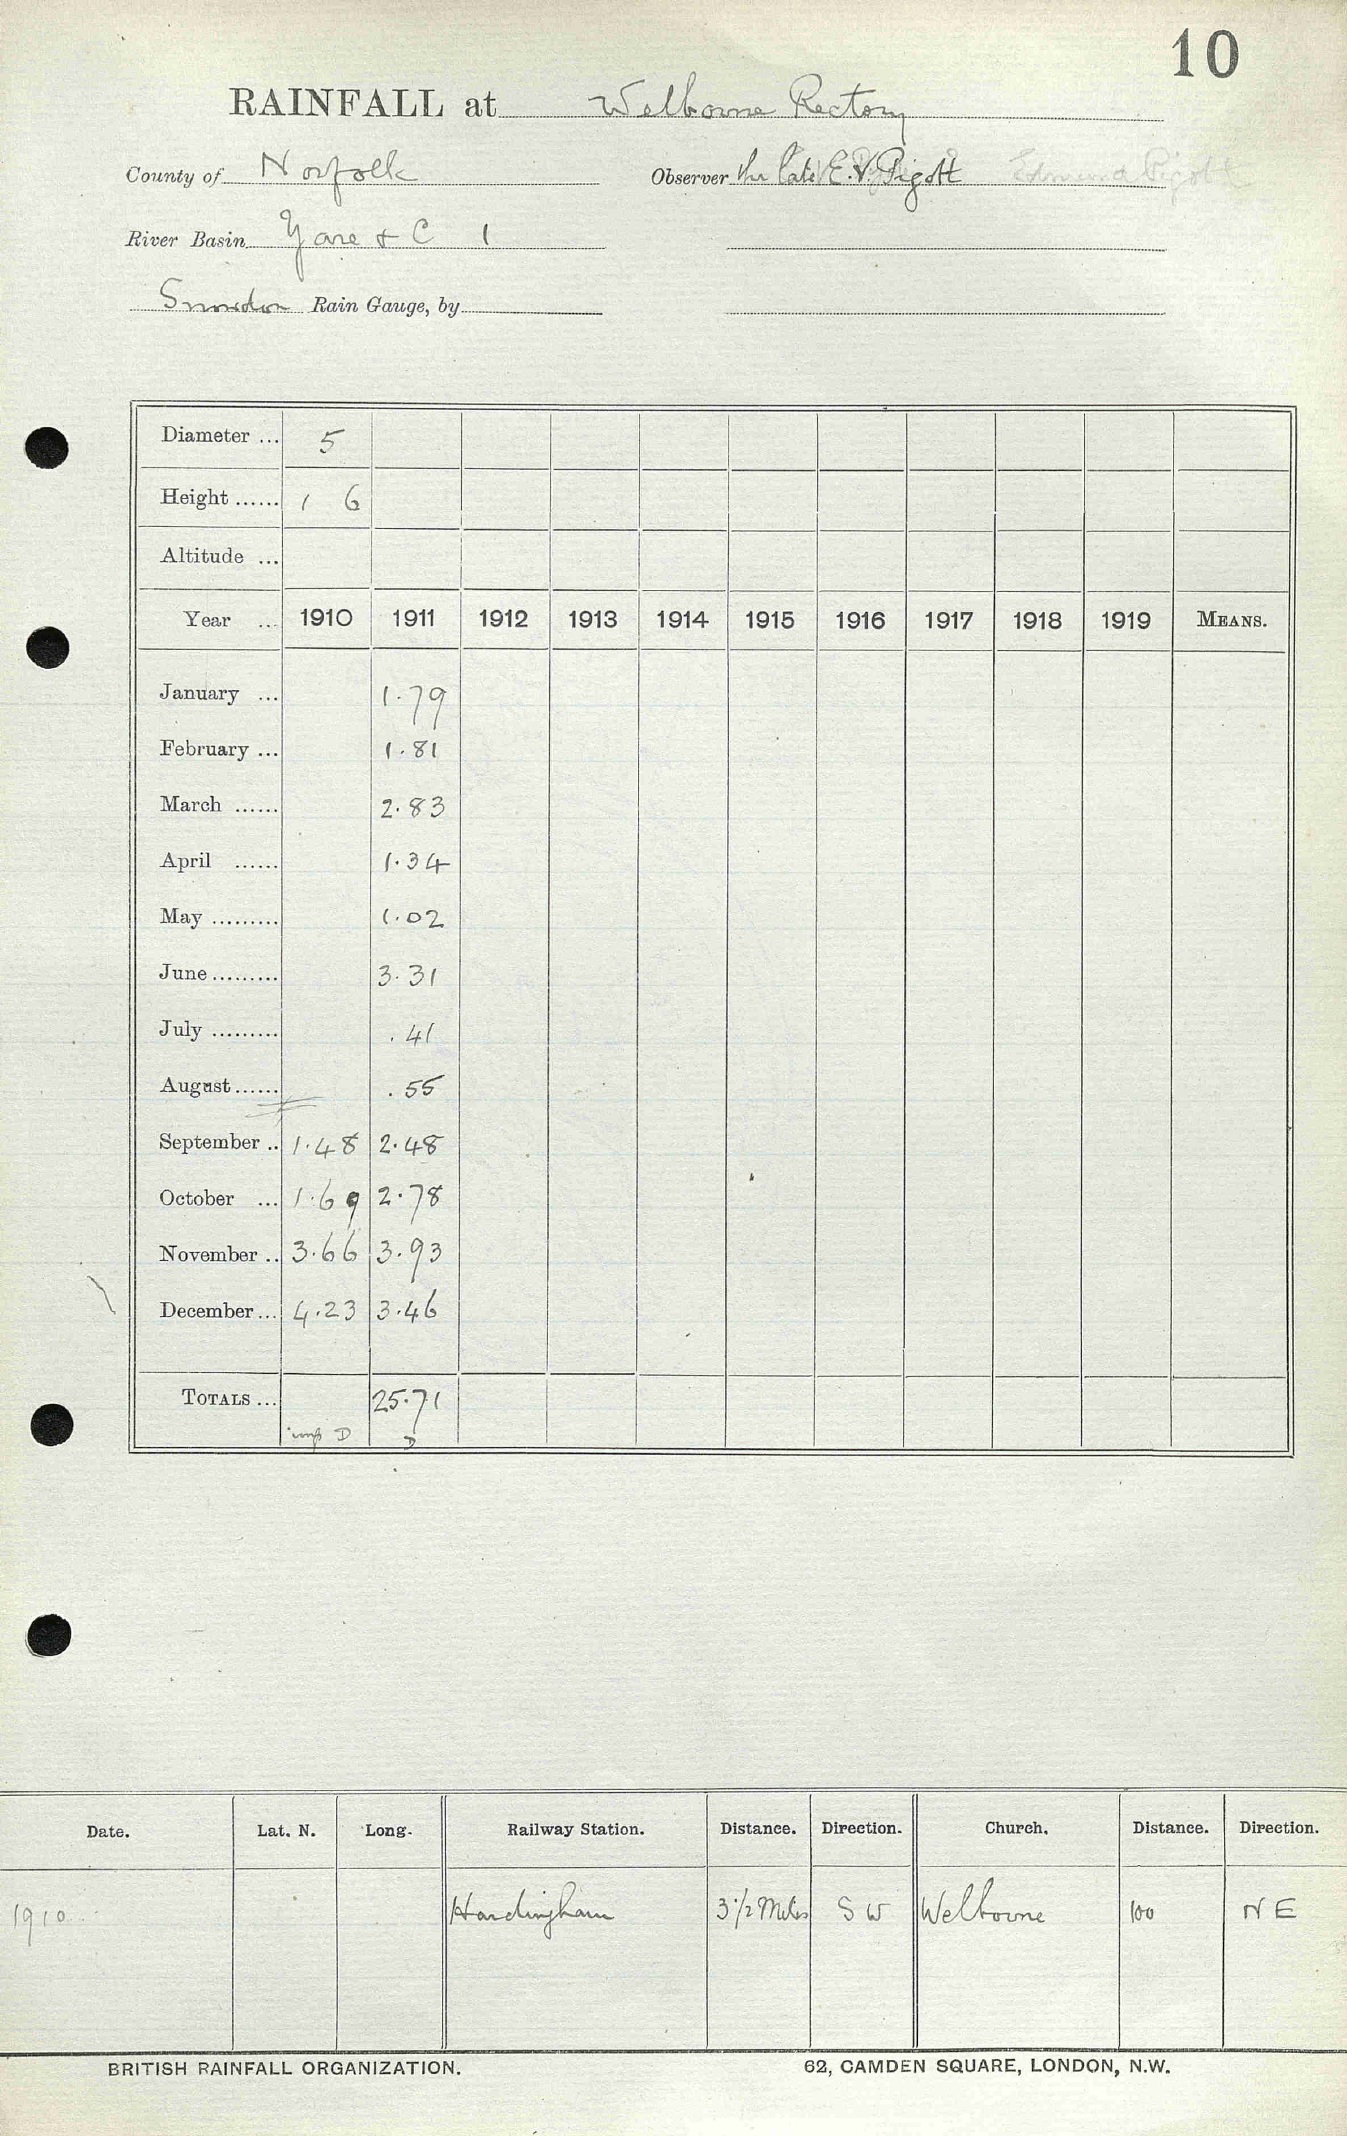 10
RAINFALL at Welborne Rectory
County of Norfolk Observer the late E.V. Pigott Edmund Pigott
River Basin Yare & C 1
Snowdon Rain Gauge, by
Diameter ... 5
Height ...... 1 6
Altitude ...
Year ... 1910 1911 1912 1913 1914 1915 1916 1917 1918 1919 MEANS.
January ... 1.79
February ... 1.81
March ...... 2.83
April ...... 1.34
May ......... 1.02
June ......... 3.31
July ......... .41
August ...... .55
September .. 1.48 2.48
October ... 1.69 2.78
November .. 3.66 3.93
December ... 4.23 3.46
TOTALS ... 25.71
imp D D
Date. Lat. N. Long. Railway Station. Distance. Direction. Church. Distance. Direction.
1910 Hardingham 3 1/2 Miles S W Welborne 100 N E
BRITISH RAINFALL ORGANIZATION. 62, CAMDEN SQUARE, LONDON, N.W.